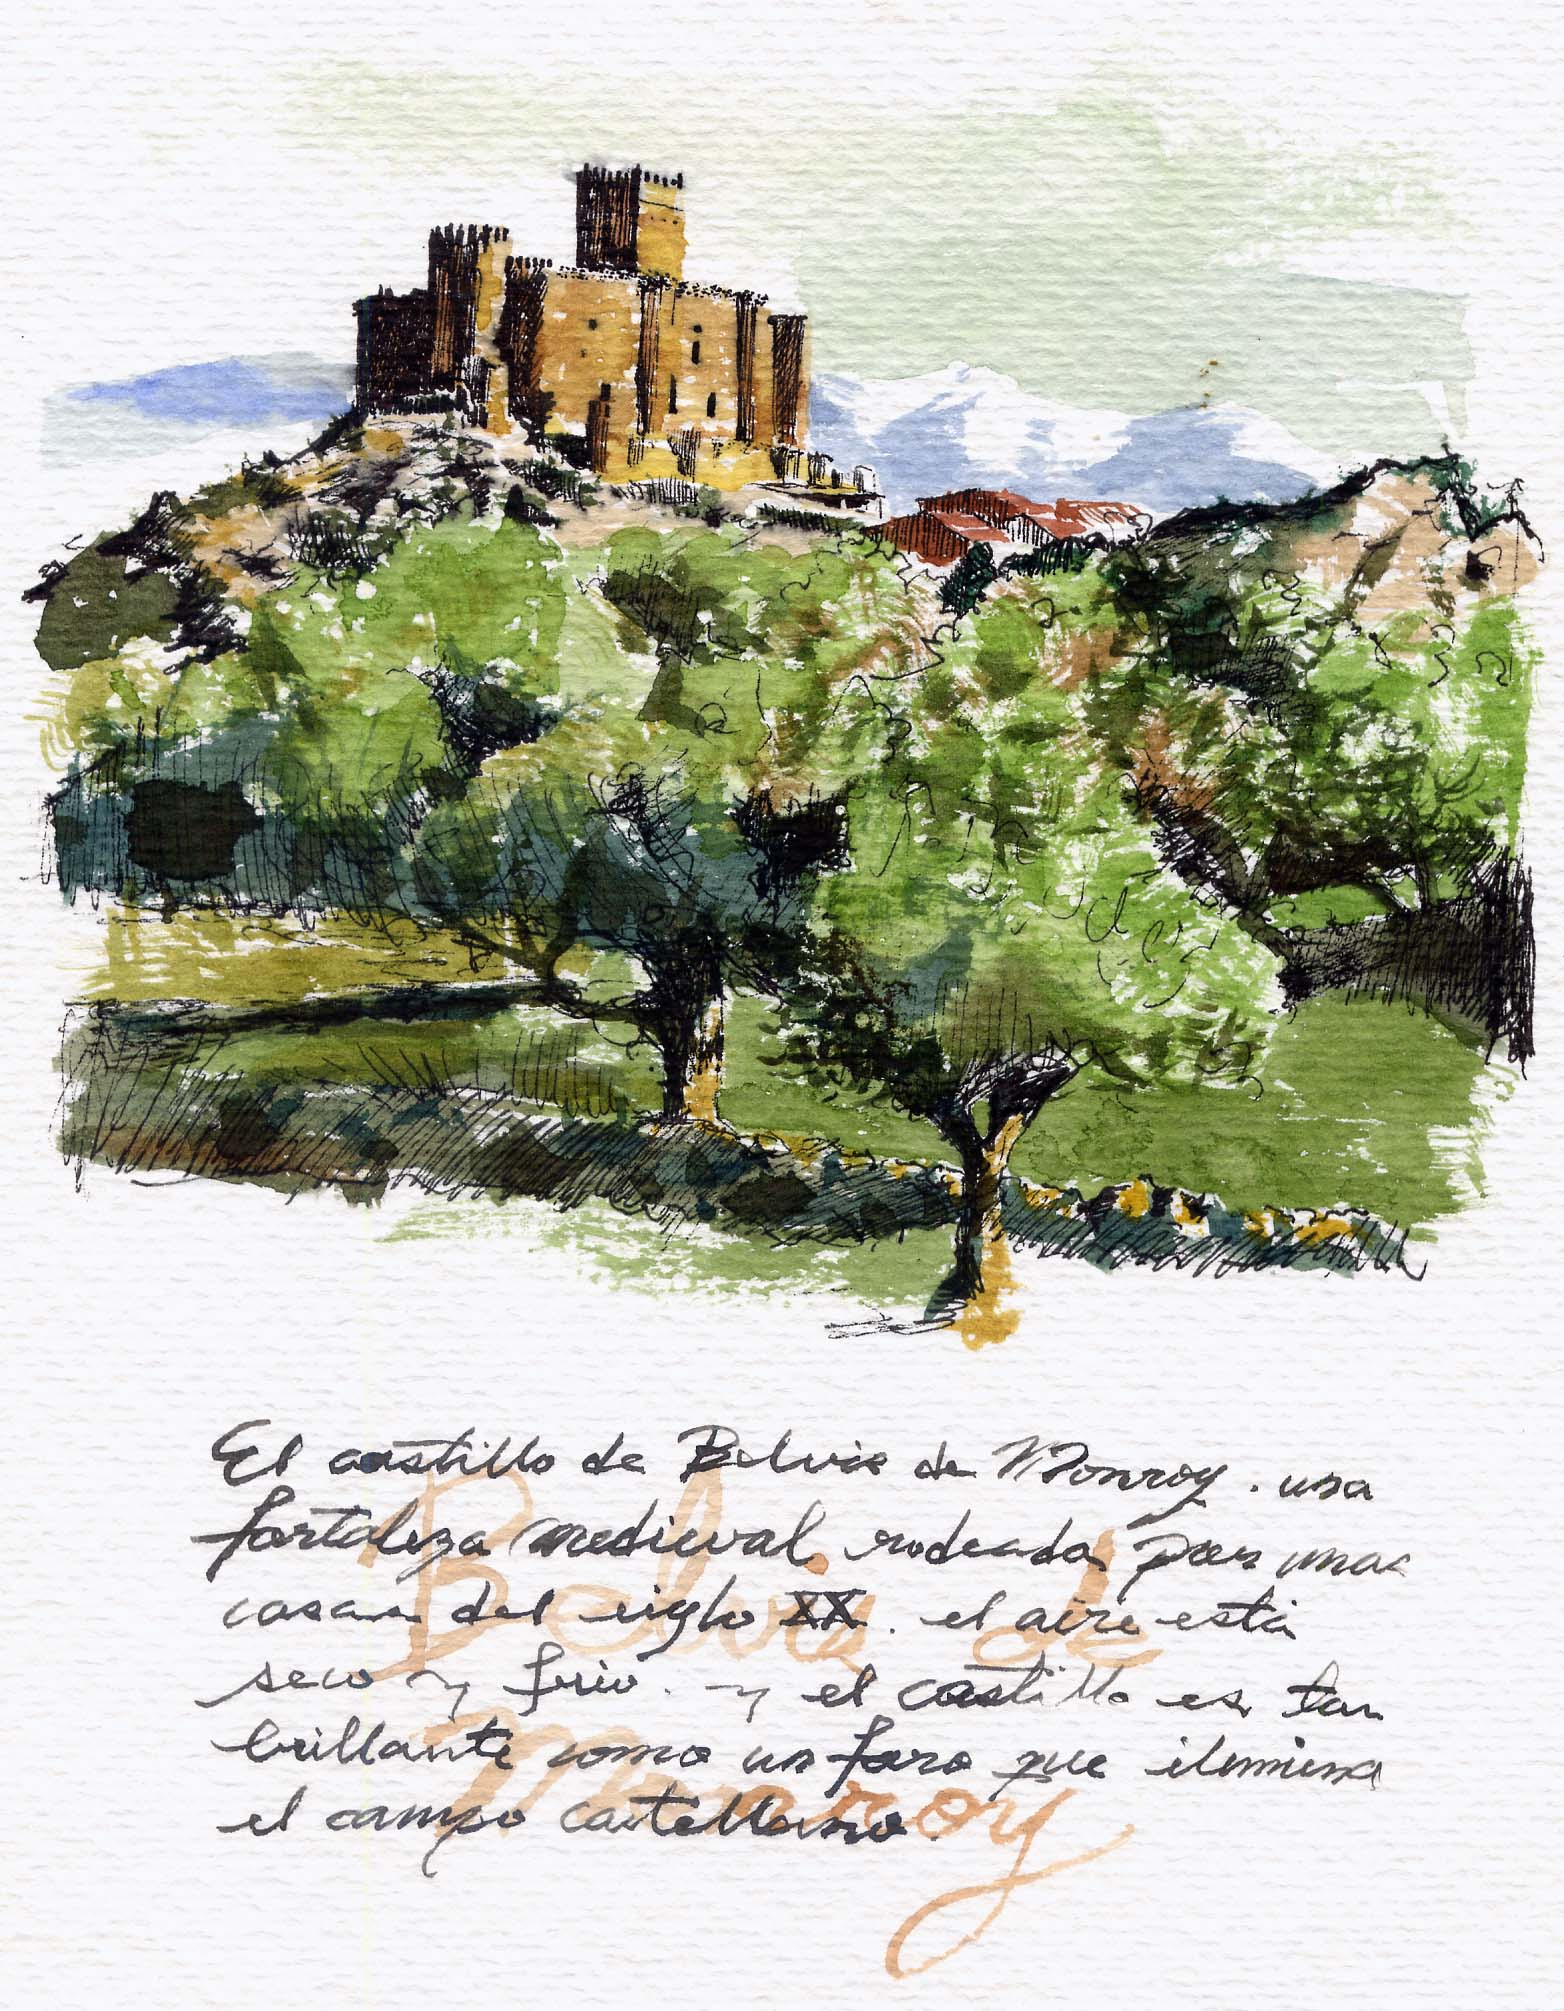 El castillo de Belvis de Monroy. una
fortaleza medieval rodeada por unas
casas del siglo XX. el aire está
seco y frio. y el castillo es tan
brillante como un faro que ilumina
el campo castellano.
Belvis de
Monroy